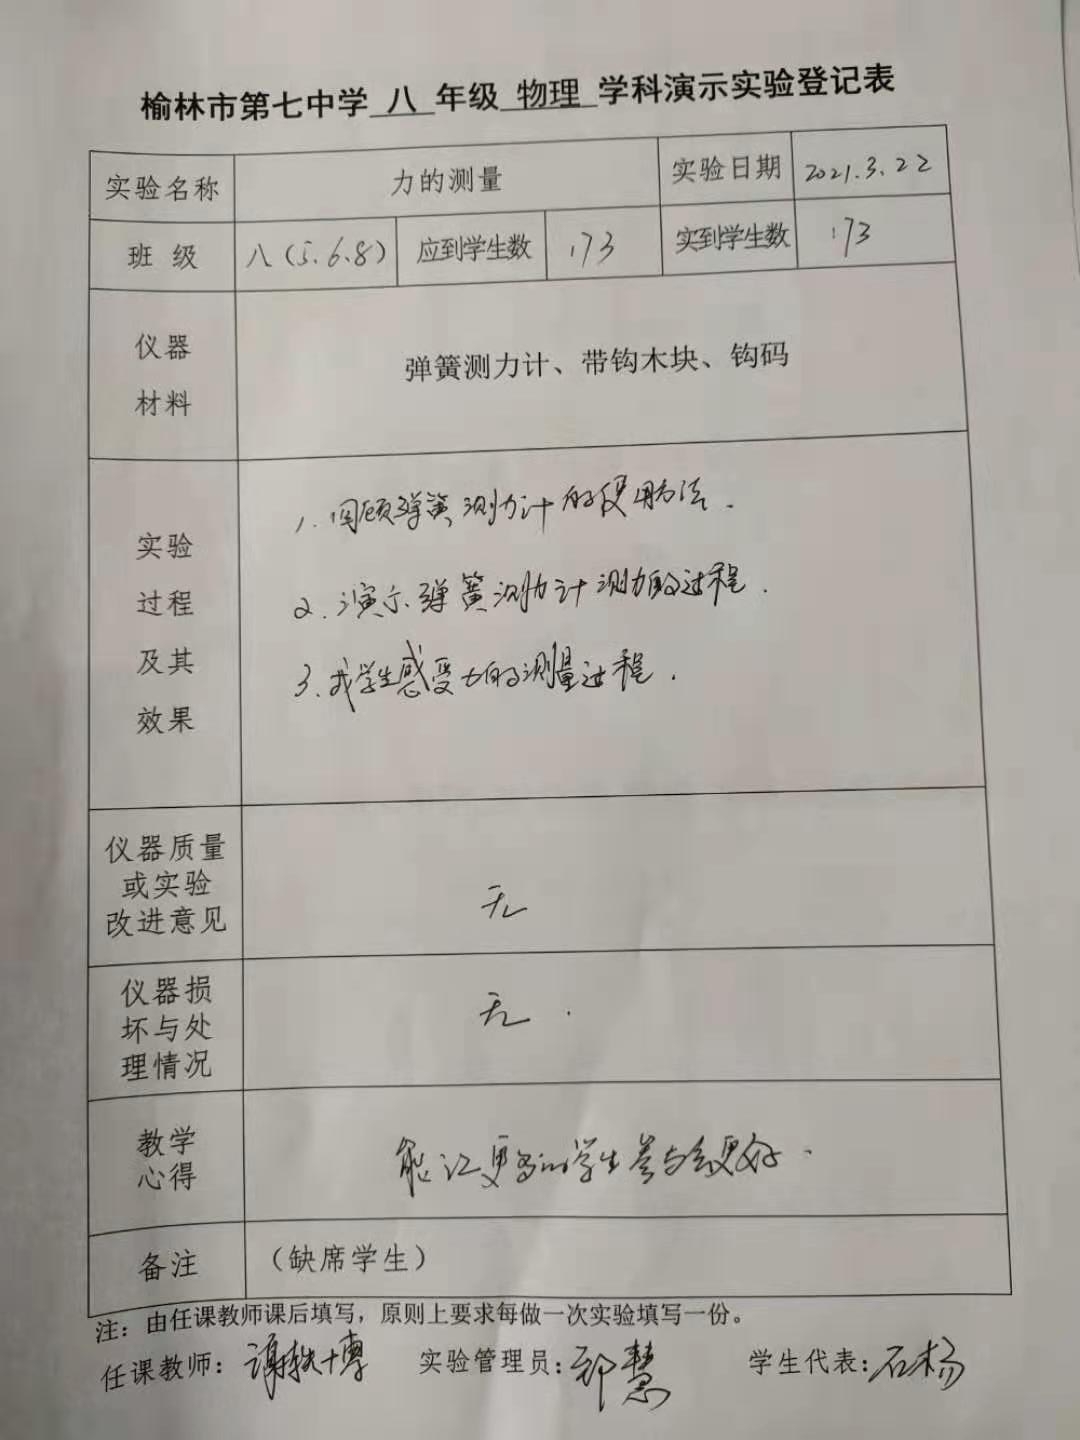 榆林市第七中学 八 年级 物理 学科演示实验登记表
实验名称 力的测量 实验日期 2021.3.22
班 级 八（5.6.8） 应到学生数 173 实到学生数 173
仪器
材料
弹簧测力计、带钩木块、钩码
实验
过程
及其
效果
1.回顾弹簧测力计的使用方法.
2.演示弹簧测力计测力的过程.
3.找学生感受力的测量过程.
仪器质量
或实验
改进意见
无
仪器损
坏与处
理情况
无.
教学
心得
能让更多的学生参与会更好.
备注 （缺席学生）
注：由任课教师课后填写，原则上要求每做一次实验填写一份。
任课教师： 实验管理员：邓慧 学生代表：石杨